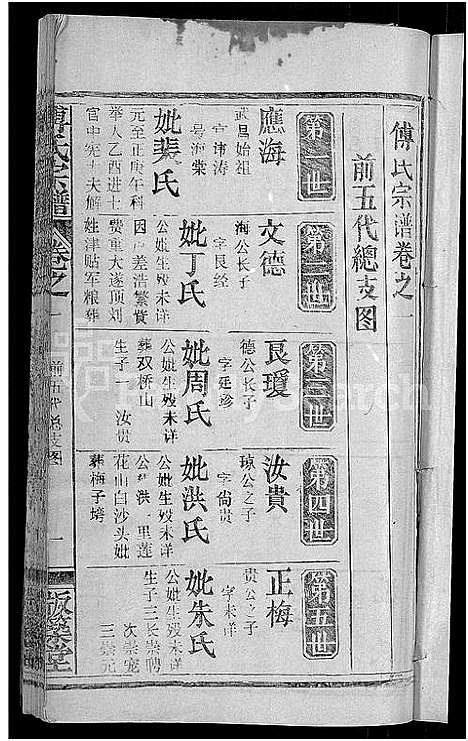 傅氏宗谱卷之一
前五代總支图
第一世
應海
武昌始祖
官讳涛
号海棠
妣裴氏
元至正庚午科
举人乙酉进士
官中宪大夫解
第二世
文德
海公长子
字良经
妣丁氏
公妣生殁未详
因户差浩繁賞
费重大遂顶刘
姓津贴军粮葬
第三世
良瓊
德公长子
字廷珍
妣周氏
公妣生殁未详
葬双桥山
生子一 汝贵
第四世
汝貴
琼公之子
字尚贵
妣洪氏
公妣生殁未详
公葬洪里莲
花山白沙头妣
葬梅子塆
第五世
正梅
贵公之子
字未详
妣朱氏
公妣生殁未详
生子三长崇聘
次崇宠
三崇元
傅氏宗譜
卷之一
前五代总支图
一
版築堂